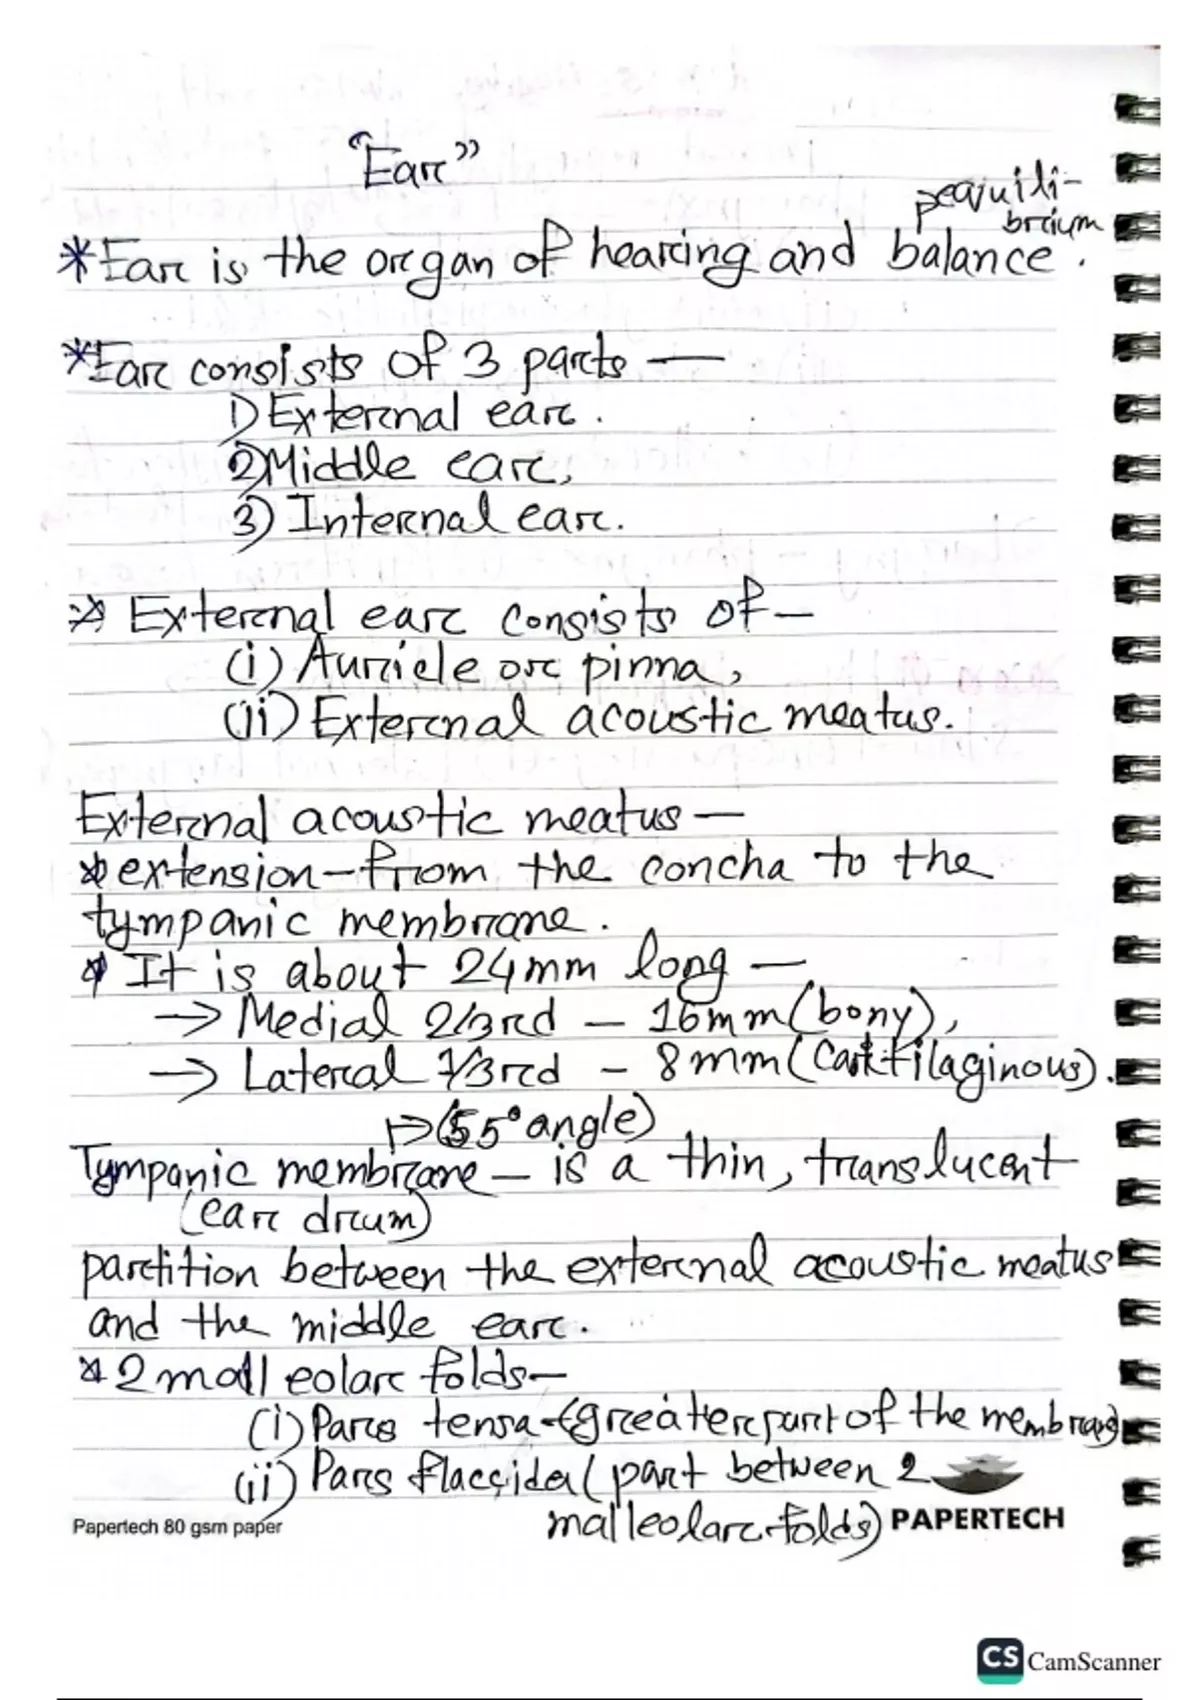 "Ear"
equili-
brium
*Ear is the organ of hearing and balance.
*Ear consists of 3 parts —
1) External ear.
2) Middle ear,
3) Internal ear.
* External ear consists of —
(i) Auricle or pinna,
(ii) External acoustic meatus.
External acoustic meatus —
* extension - from the concha to the
tympanic membrane.
* It is about 24mm long —
→ Medial 2/3rd — 16mm (bony),
→ Lateral 1/3rd — 8mm (cartilaginous).
→ (55° angle)
Tympanic membrane — is a thin, translucent
(ear drum)
partition between the external acoustic meatus
and the middle ear.
* 2 malleolar folds —
(i) Pars tensa - (greater part of the membrane)
(ii) Pars flaccida (part between 2
malleolar folds)
Papertech 80 gsm paper
PAPERTECH
CS CamScanner